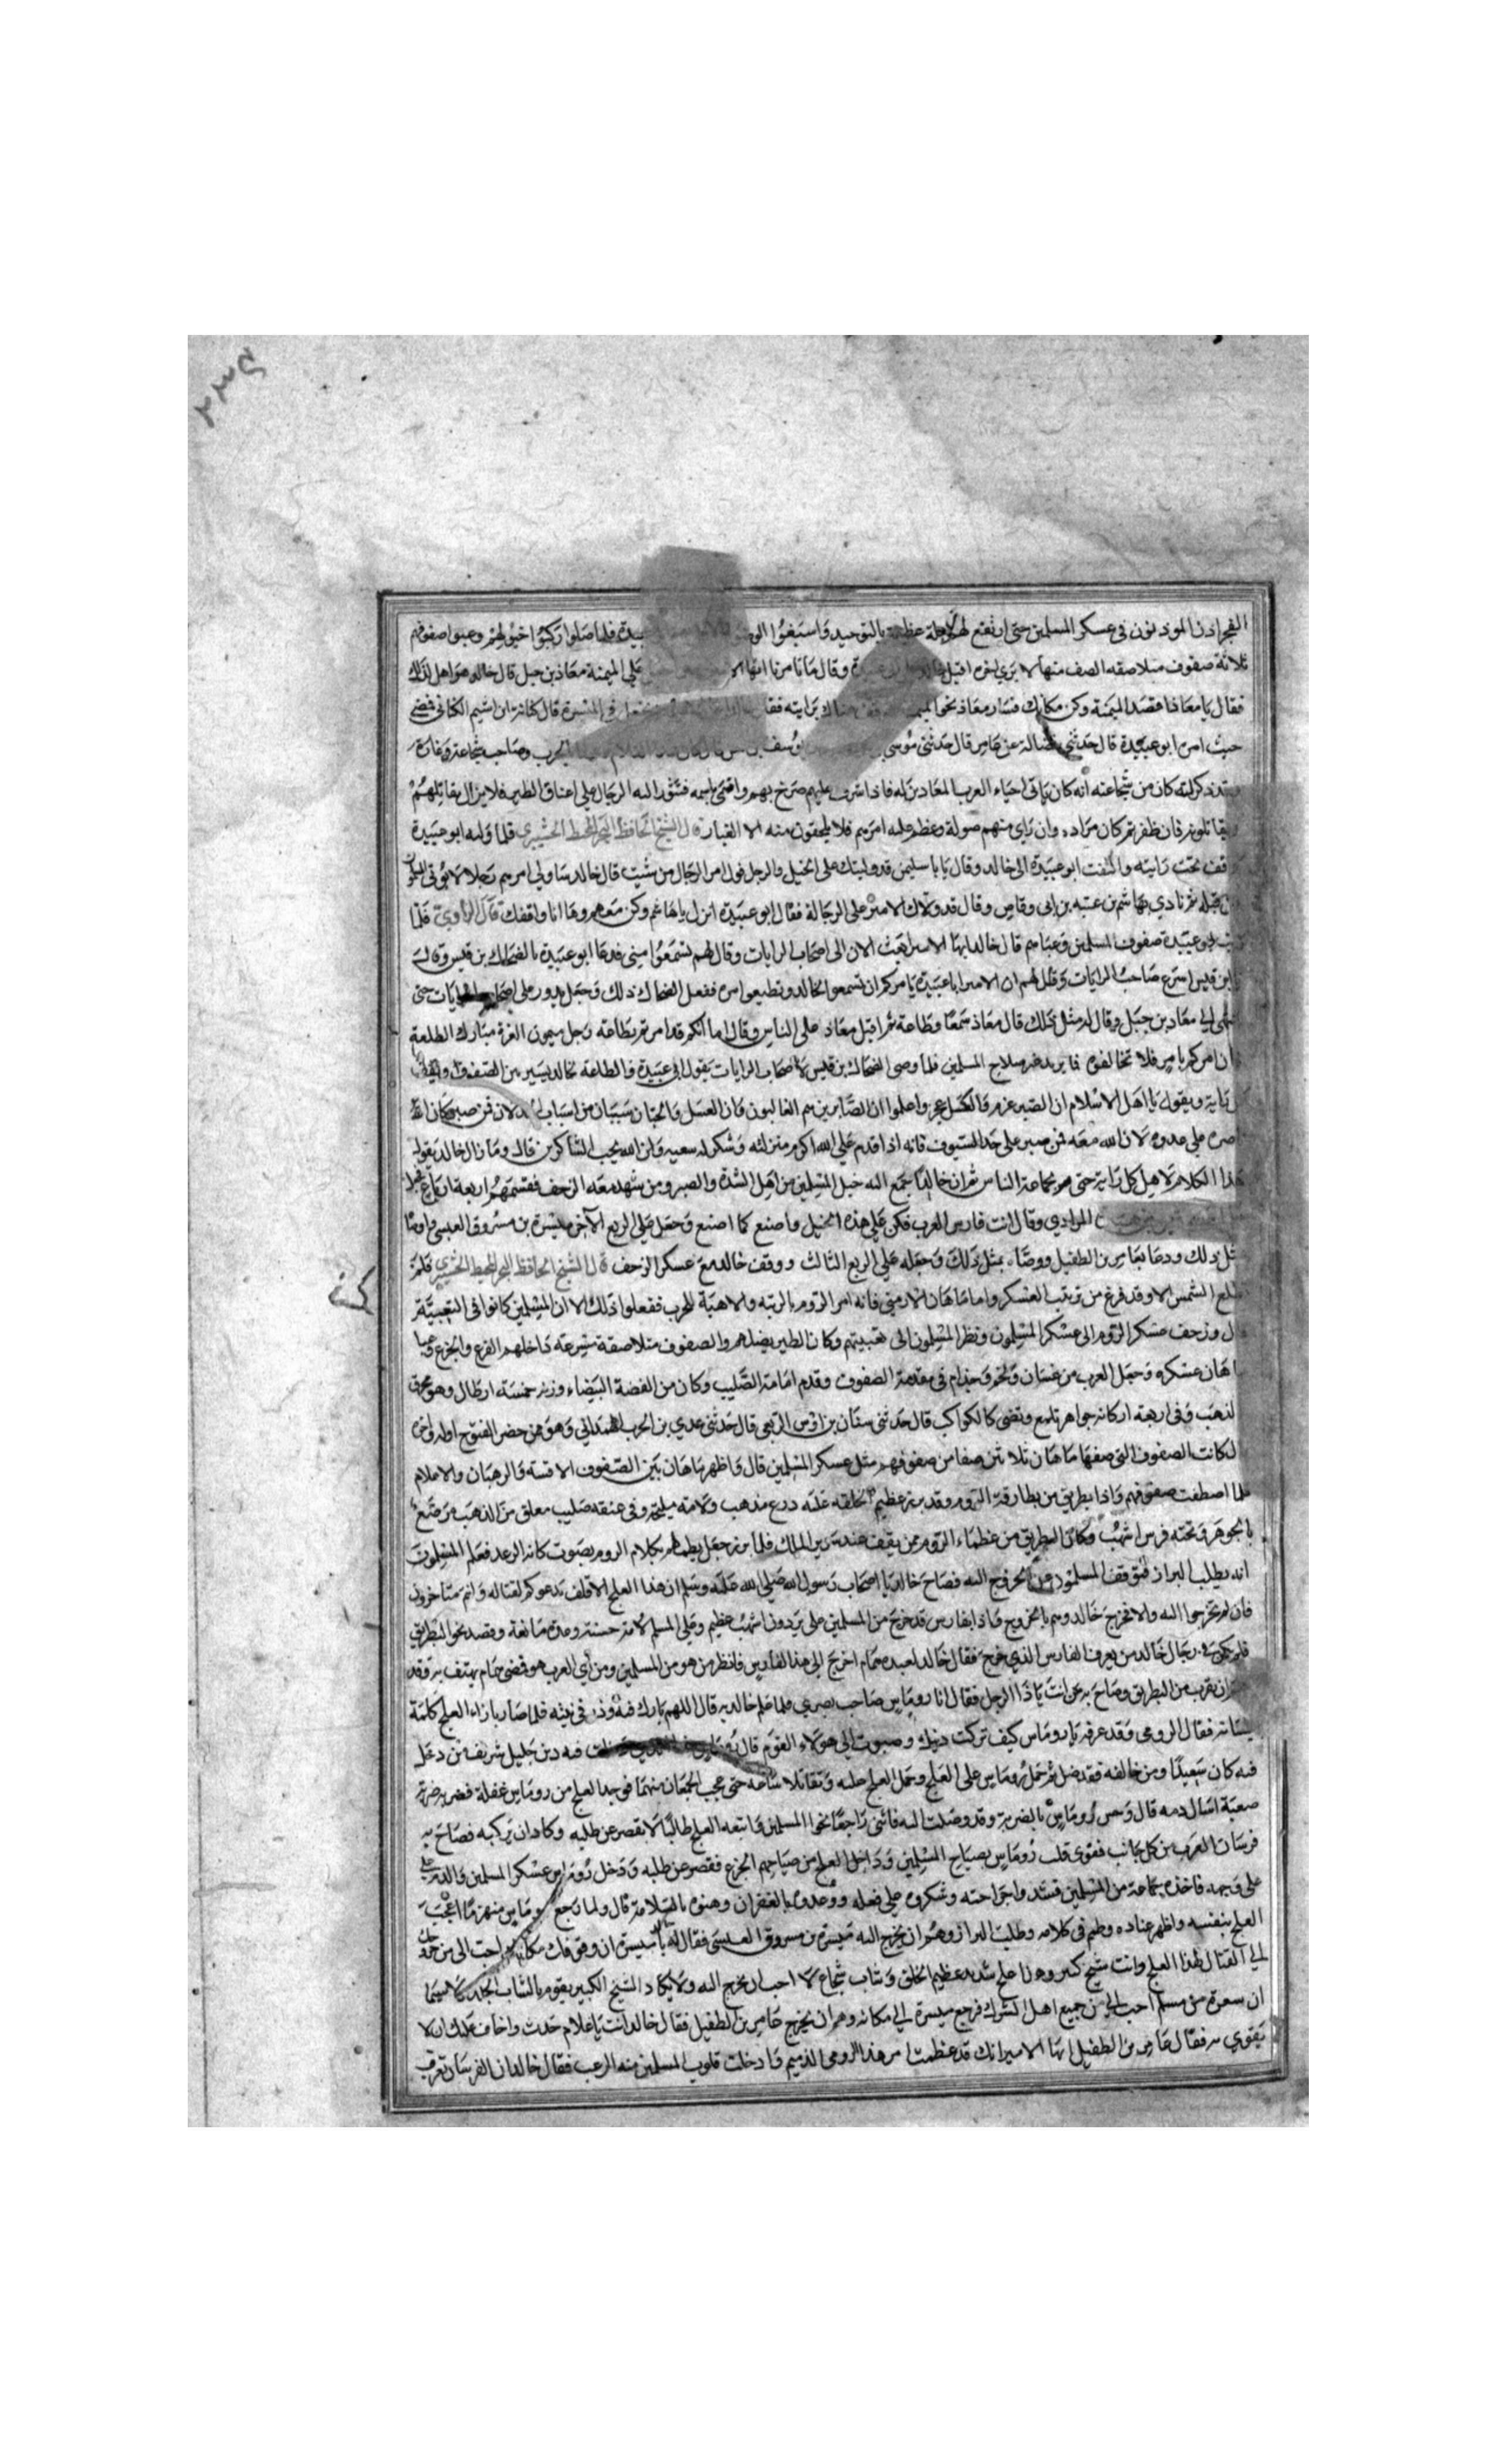 ٢٣٤
الفجر اذن الموذنون في عسكر المسلمين حتى ارتفع لهم عظيمة بالتوحيد واسبغوا فلما صلوا ركبوا خيولهم وعبوا صفوفهم
ثلاثة صفوف متلاصقه الصف منها لا يري اخره اقبل وقال ما تامرنا ايها الا علي الميمنة معاذ بن جبل قال خالد هو اهل لذلك
فقال يا معاذ اقصد الميمنة وكن مكانك فسار معاذ نحو هناك برايته فقا الميسرة قال كنانة ابن اشيم الكناني فمضي
حيث امره ابو عبيدة قال حدثني فضالة عن عامر قال حدثني موسي الحرب وصاحب شجاعة وغارة
كان من شجاعته انه كان ياتي احياء العرب المعادين له فاذا اشرف عليهم صرخ بهم واقتحم باسمه فتنفر اليه الرجال علي اعناق الطير فلا يزال يقاتلهم
ويقاتلونه فان ظفر بهم كان مراده وان راي منهم صولة وعظم عليه امرهم فلا يلحقون منه الا الغبار قال الشيخ الحافظ فلما وليه ابو عبيدة
وقف تحت رايته والتفت ابو عبيدة الي خالد وقال يا با سليمن قد وليتك علي الخيل والرجل فول امر الرجال من شيت قال خالد ساولي امرهم رجلا لا يؤتى المسلمون
من قبله ثم نادي بهاشم بن عتبة بن ابي وقاص وقال قد ولاك الامير علي الرجالة فقال ابو عبيدة انزل يا هاشم وكن معهم وها انا واقفك قال الراوي فلما
ابو عبيدة صفوف المسلمين وعباهم قال خالد ايها الامير ابعث الان الي اصحاب الرايات وقال لهم يسمعوا مني فدعا ابو عبيدة بالضحاك بن قيس وقال
يا ابن قيس اسرع صاحب الرايات وقل لهم ان الامير ابا عبيدة يامركم ان تسمعوا لخالد وتطيعوا امره ففعل الضحاك ذلك وجعل يدور علي اصحاب الرايات حتي
انتهى الي معاذ بن جبل وقال له مثل ذلك قال معاذ سمعا وطاعة ثم اقبل معاذ علي الناس وقال اما انكم قد امرتم بطاعة رجل ميمون الغرة مبارك الطلعة
فان امركم بامر فلا تخالفوه فما يريد غير صلاح المسلمين فلما وصي الضحاك بن قيس لاصحاب الرايات بقول ابي عبيدة والطاعة لخالد يسير بين الصفوف
راية ويقول يا اهل الاسلام ان الصبر عزم والفشل عجز واعلموا ان الصابرين هم الغالبون وان الفشل والجبان سببان من اسباب الخذلان فمن صبر كان الله
ناصره علي عدوه لان الله معه فمن صبر علي حد السيوف فانه اذا اقدم علي الله اكرم منزلته وشكر له سعيه وان الله يحب الشاكرين قال وما زال خالد يقول
هذا الكلام لاهل كل راية حتي مر بجماعة الناس ثم ان خالدا جمع اليه خيل المسلمين من اهل الشدة والصبر ومن شهد معه الزحف فقسمهم اربعة ارباع فجعل
المرادي وقال انت فارس العرب فكن علي هذه الخيل واصنع كما اصنع وجعل علي الربع الآخر ميسرة بن مسروق العبسي واوصاه
مثل ذلك ودعا بعامر بن الطفيل ووصاه بمثل ذلك وجعله علي الربع الثالث ووقف خالد مع عسكر الزحف قال الشيخ الحافظ فلم
تطلع الشمس الا وقد فرغ من ترتيب العسكر واما ماهان الارمني فانه امر الروم بالرتبه والاهبة للحرب ففعلوا ذلك الا ان المسلمين كانوا في التعبية
قال وزحف عسكر الروم الي عسكر المسلمين ونظر المسلمون الي تعبيتهم وكان الطير يضلهم والصفوف متلاصقة داخلهم الفزع والجزع وعبا
ماهان عسكره وجعل العرب من غسان ولخم وجذام في مقدمة الصفوف وقدم امامه الصليب وكان من الفضة البيضاء وزنه خمسة ارطال وهو
بالذهب وفي اربعة اركانه جواهر تلمع وتضي كالكواكب قال حدثني سنان بن اوس الربعي قال حدثني عدي بن الحرب الهمداني وهو ممن حضر الفتوح اوله واخره
قال كانت الصفوف التي صفها ماهان ثلاثين صفا من صفوفهم مثل عسكر المسلمين قال واظهر ماهان بين الصفوف الاقسة والرهبان والاعلام
فلما اصطفت صفوفهم واذا بطريق من بطارقة الروم وقد برز عظيم الخلقه عليه درع مذهب ولامه مليحة وفي عنقه صليب معلق من الذهب مرصع
بالجوهر وتحته فرس اشهب وكان البطريق من عظماء الروم ممن يقف عند سرير الملك فلما برز جعل يطمطم بكلام الروم بصوت كانه الرعد فعلم المسلمون
انه يطلب البراز فتوقف المسلمون عن الخروج اليه فصاح خالد يا اصحاب رسول الله صلي الله عليه وسلم ان هذا العلج الاقلف يدعوكم لقتاله وانتم متاخرون
فان لم تخرجوا اليه والا فخرج خالد وهم بالخروج واذا بفارس قد خرج من المسلمين علي برذون اشهب عظيم وعلي المسلم لامة حسنه وعدة مانعة وقصد نحو البطريق
رجال خالد من يعرف الفارس الذي خرج فقال خالد لعبده همام اخرج الي هذا الفارس فانظر من هو من المسلمين ومن اي العرب هو فمضى همام يهتف به وقد
قرب من البطريق وصاح به من انت يا ذا الرجل فقال انا روماس صاحب بصري فلما علم خالد به قال اللهم بارك فيه وزد في نيته فلما صار بازاء العلج كلمه
بلسانه فقال الرومي وقد عرفه يا روماس كيف تركت دينك وصبوت الي هولاء القوم قال روماس فيه دين جليل شريف فمن دخل
فيه كان سعيدا ومن خالفه فقد ضل ثم حمل روماس علي العلج وحمل العلج عليه وتقاتلا ساعة حتي عجب الجمعان منهما فوجد العلج من روماس غفلة فضربه ضربة
صعبة اسال دمه قال وحس روماس بالضربة وقد وصلت اليه فانثني راجعا نحو المسلمين فاتبعه العلج طالبا لا يقصر عن طلبه وكاد ان يركبه فصاح به
فرسان العرب من كل جانب فقوي قلب روماس بصياح المسلمين وداخل العلج من صياحهم الجزع فقصر عن طلبه ودخل روماس عسكر المسلمين والدم علي
علي وجهه فاخذه جماعة من المسلمين فشدوا جراحته وشكروه علي فعله ووعدوه بالغفران وهنوه بالسلامة قال ولما رجع روماس منهزما اعجب
العلج بنفسه واظهر عناده وطم في كلامه وطلب البراز وهم ان يخرج اليه ميسرة بن مسروق العبسي فقال له يا ميسرة ان وقوفك مكانك احب الي من خروجك
الي القتال لهذا العلج وانت شيخ كبير وهذا علج شديد عظيم الخلق وشاب شجاع لا احب ان يخرج اليه ولا يكاد الشيخ الكبير يقوم بالشاب الجلد لا سيما
ان شعرة من مسلم احب الي من جميع اهل الشرك فرجع ميسرة الي مكانه وهم ان يخرج عامر بن الطفيل فقال خالد انت يا غلام حدث واخاف عليك ان لا
تقوي به فقال عامر بن الطفيل ايها الامير انك قد عظمت امر هذا الرومي الذميم وادخلت قلوب المسلمين منه الرعب فقال خالد ان الفرسان تعرف